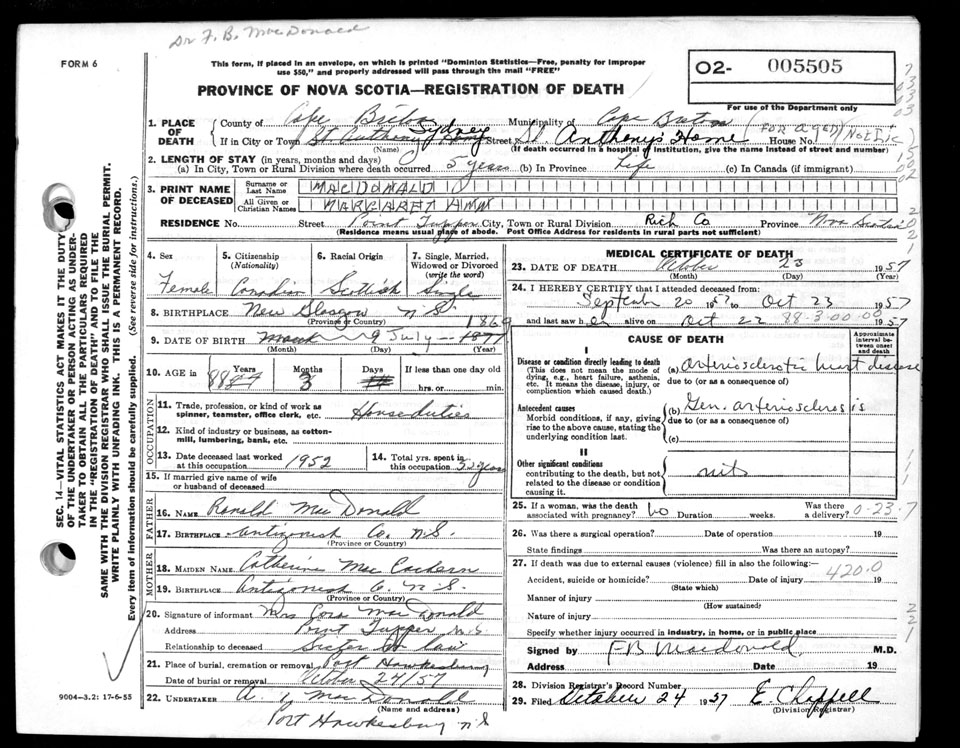 Dr F. B. MacDonald
FORM 6
This form, if placed in an envelope, on which is printed "Dominion Statistics—Free, penalty for improper
use $50," and properly addressed will pass through the mail "FREE"
02- 005505
PROVINCE OF NOVA SCOTIA—REGISTRATION OF DEATH
For use of the Department only
1. PLACE OF DEATH
County of Cape Breton Municipality of Cape Breton
If in City or Town Sydney Street St. Anthony's Home House No. (FOR AGED)
(Name) (If death occurred in a hospital or institution, give the name instead of street and number)
2. LENGTH OF STAY (in years, months and days)
(a) In City, Town or Rural Division where death occurred 5 years (b) In Province Life (c) In Canada (if immigrant)
3. PRINT NAME OF DECEASED
Surname or Last Name MACDONALD
All Given or Christian Names MARGARET ANN
RESIDENCE No. Street Point Tupper City, Town or Rural Division Rich Co Province Nova Scotia
(Residence means usual place of abode. Post Office Address for residents in rural parts not sufficient)
4. Sex
Female
5. Citizenship (Nationality)
Canadian
6. Racial Origin
Scottish
7. Single, Married, Widowed or Divorced (write the word)
Single
8. BIRTHPLACE New Glasgow N.S.
(Province or Country)
1869
9. DATE OF BIRTH March 9 July 1877
(Month) (Day) (Year)
10. AGE in Years Months Days If less than one day old
88 3 hrs. or min.
OCCUPATION
11. Trade, profession, or kind of work as spinner, teamster, office clerk, etc. House duties
12. Kind of industry or business, as cotton-mill, lumbering, bank, etc.
13. Date deceased last worked at this occupation 1952
14. Total yrs. spent in this occupation years
15. If married give name of wife or husband of deceased
FATHER
16. NAME Ranald MacDonald
17. BIRTHPLACE Antigonish Co. N.S.
(Province or Country)
MOTHER
18. MAIDEN NAME Catherine Mac
19. BIRTHPLACE Antigonish Co N.S.
(Province or Country)
20. Signature of informant Mrs Cora MacDonald
Address Point Tupper N.S
Relationship to deceased Sister in law
21. Place of burial, cremation or removal Port Hawkesbury
Date of burial or removal October 24/57
22. UNDERTAKER A. MacDonald
(Name and address)
Port Hawkesbury N.S
MEDICAL CERTIFICATE OF DEATH
23. DATE OF DEATH October 23 1957
(Month) (Day) (Year)
24. I HEREBY CERTIFY that I attended deceased from:
September 20 1957 to Oct 23 1957
and last saw her alive on Oct 22 1957
88-3-00-00
CAUSE OF DEATH
Approximate interval between onset and death
I
Disease or condition directly leading to death
(This does not mean the mode of dying, e.g., heart failure, asthenia, etc. It means the disease, injury, or complication which caused death.)
(a) arteriosclerotic heart disease
due to (or as a consequence of)
Antecedent causes
Morbid conditions, if any, giving rise to the above cause, stating the underlying condition last.
(b) Gen. arteriosclerosis
due to (or as a consequence of)
(c)
II
Other significant conditions
contributing to the death, but not related to the disease or condition causing it.
25. If a woman, was the death associated with pregnancy? No Duration weeks. Was there a delivery?
0-23-7
26. Was there a surgical operation? Date of operation 19
State findings Was there an autopsy?
27. If death was due to external causes (violence) fill in also the following:—
Accident, suicide or homicide? Date of injury 19
(State which)
420.0
Manner of injury
(How sustained)
Nature of injury
Specify whether injury occurred in industry, in home, or in public place
Signed by F B Macdonald M.D.
Address Date 19
28. Division Registrar's Record Number
29. Filed October 24 1957 E Chappell
(Division Registrar)
SEC. 14—VITAL STATISTICS ACT MAKES IT THE DUTY
OF THE UNDERTAKER OR PERSON ACTING AS UNDER-
TAKER TO OBTAIN ALL THE PARTICULARS REQUIRED
IN THE "REGISTRATION OF DEATH" AND TO FILE THE
SAME WITH THE DIVISION REGISTRAR WHO SHALL ISSUE THE BURIAL PERMIT.
WRITE PLAINLY WITH UNFADING INK. THIS IS A PERMANENT RECORD.
Every item of information should be carefully supplied. (See reverse side for instructions.)
9004-3.2: 17-6-55